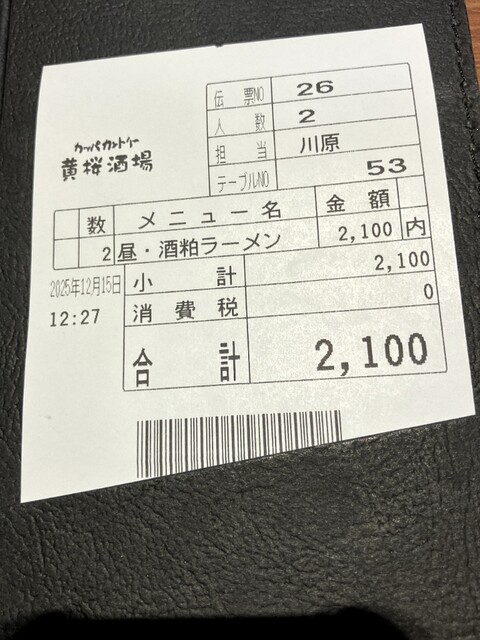 伝票NO 26
人数 2
担当 川原
テーブルNO 53
カッパカントリー
黄桜酒場
数 メニュー名 金額
2 昼・酒粕ラーメン 2,100 内
2025年12月15日
12:27
小計 2,100
消費税 0
合計 2,100